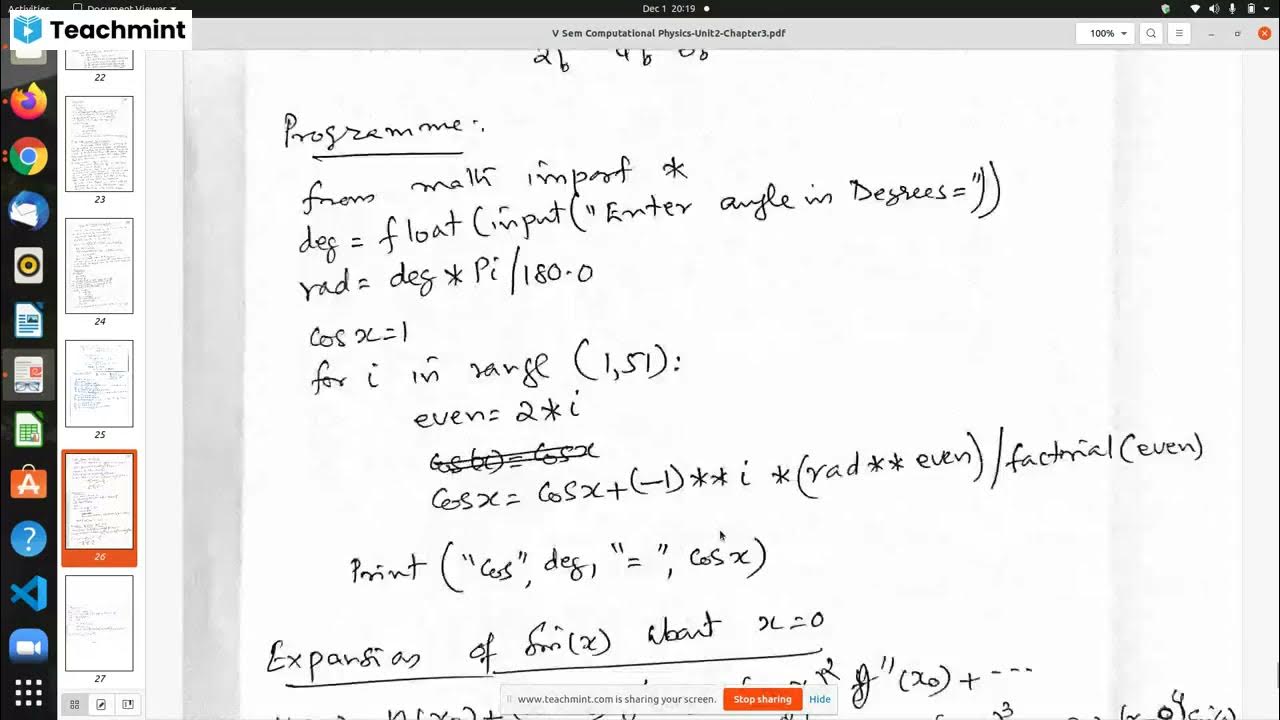 Activities
Document Viewer
Dec 1 20:19
Teachmint
V Sem Computational Physics-Unit2-Chapter3.pdf
100%
22
23
24
25
26
27
Programme:.
from math import *
deg = float (input("Enter angle in Degrees="))
rad = deg * Pi/180.0
cosx=1
for i in range (1,51):
even= 2*i
cos(x) = cosx
cosx= cosx+(-1)**i *(rad** even)/factorial(even)
Print ("cos", deg, "=", cosx)
Expansion of Sin(x) about x=0
y''(x₀) + ----
www.teachmint.com is sharing your screen.
Stop sharing
Hide